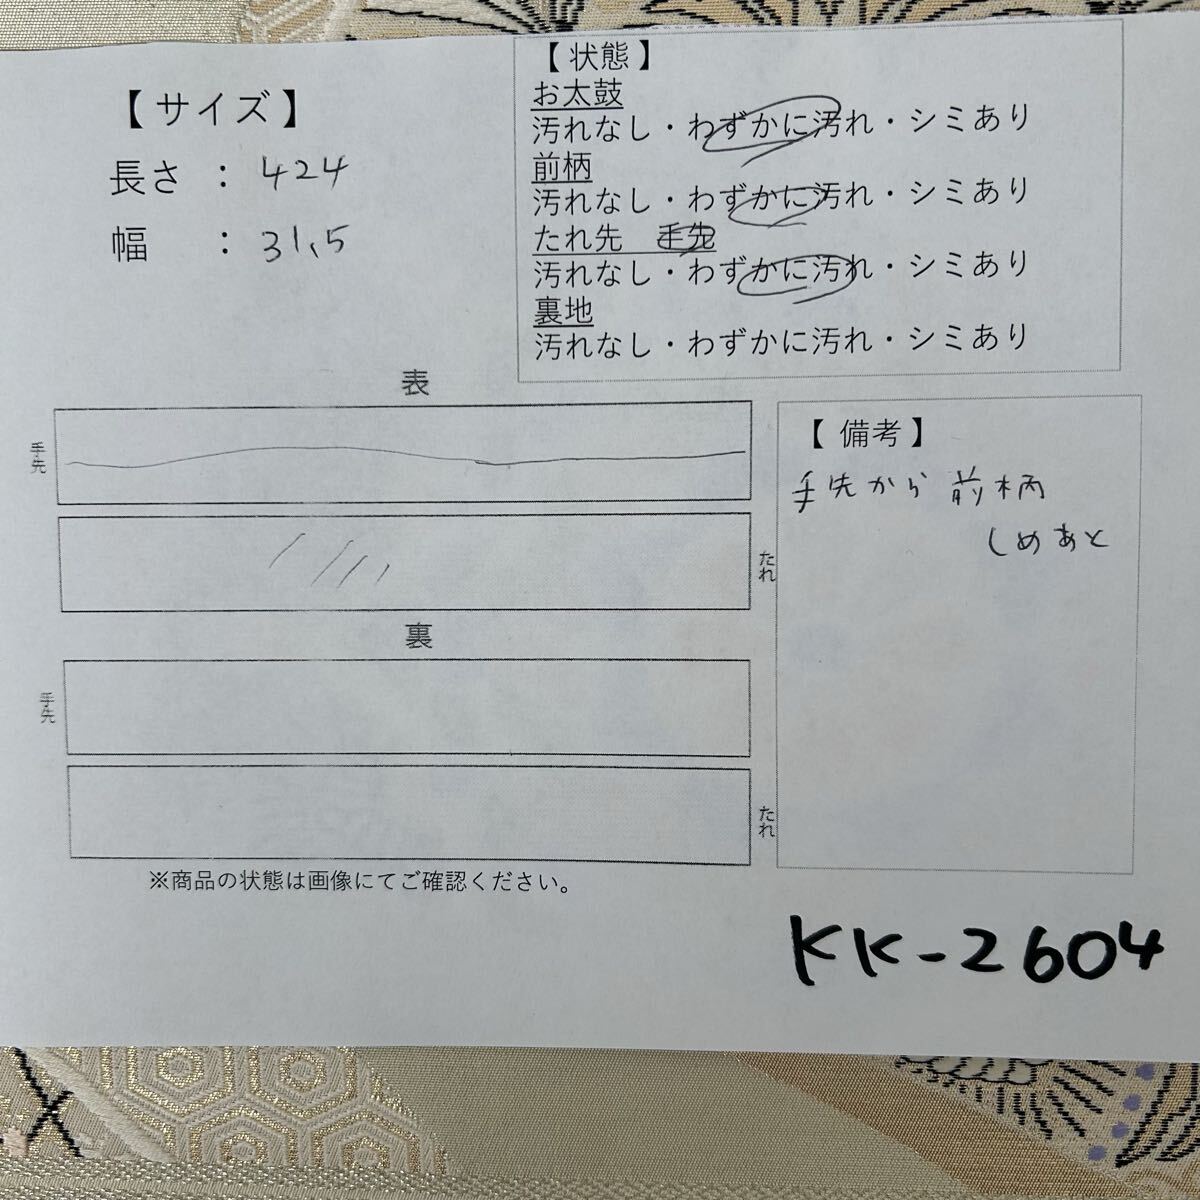 【サイズ】
長さ ： 424
幅 ： 31.5
【状態】
お太鼓
汚れなし・わずかに汚れ・シミあり
前柄
汚れなし・わずかに汚れ・シミあり
たれ先 手先
汚れなし・わずかに汚れ・シミあり
裏地
汚れなし・わずかに汚れ・シミあり
表
手先
たれ
裏
手先
たれ
【備考】
手先から前柄
しめあと
※商品の状態は画像にてご確認ください。
KK-2604